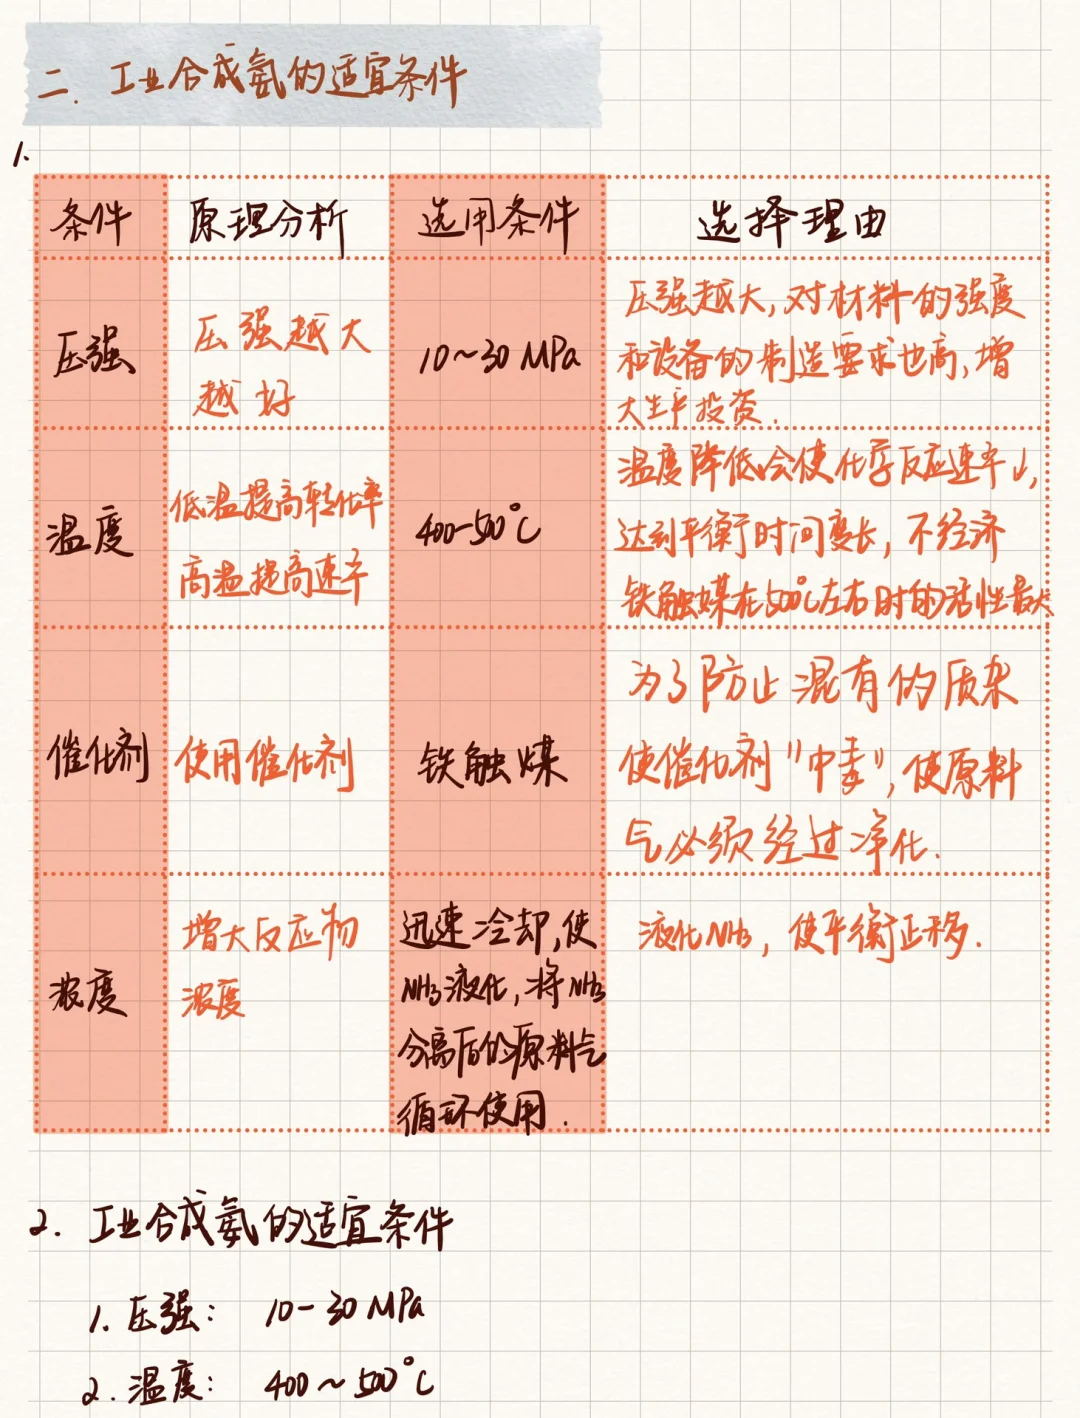 二. 工业合成氨的适宜条件
1.
条件 原理分析 选用条件 选择理由
压强
压强越大
越好
10~30 MPa
压强越大,对材料的强度
和设备的制造要求也高,增
大生产投资.
温度
低温提高转化率
高温提高速率
400-500°C
温度降低会使化学反应速率↓,
达到平衡时间变长,不经济
铁触媒在500℃左右时的活性最大
催化剂
使用催化剂
铁触媒
为了防止混有的质杂
使催化剂"中毒",使原料
气必须经过净化.
浓度
增大反应物
浓度
迅速冷却,使
NH3液化,将NH3
分离后的原料气
循环使用.
液化NH3,使平衡正移.
2. 工业合成氨的适宜条件
1. 压强: 10-30 MPa
2. 温度: 400~500°C